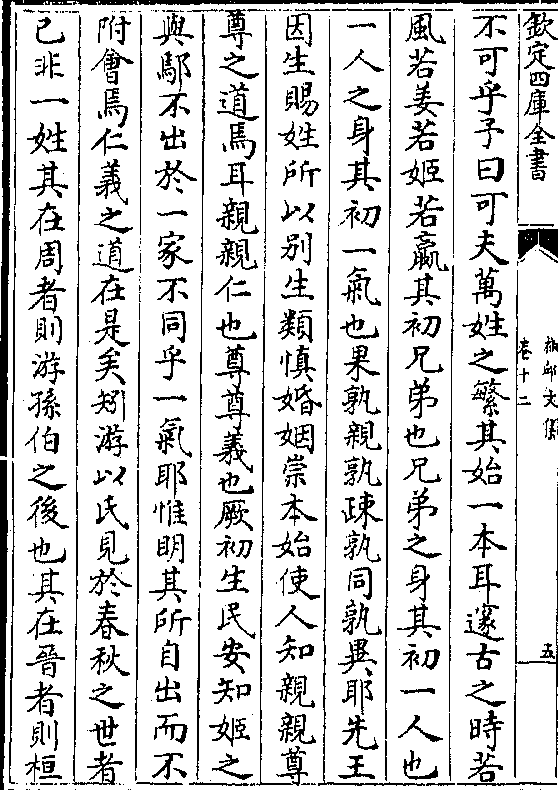 欽定四庫全書
柳邨文集
卷十二
五
不可乎予曰可夫萬姓之繁其始一本耳邃古之時若
風若姜若姬若嬴其初兄弟也兄弟之身其初一人也
一人之身其初一氣也果孰親孰疎孰同孰異耶先王
因生賜姓所以别生類慎婚姻崇本始使人知親親尊
尊之道焉耳親親仁也尊尊義也厥初生民安知姬之
與鄢不出於一家不同乎一氣耶惟明其所自出而不
附會焉仁義之道在是矣矧游以氏見於春秋之世者
已非一姓其在周者則游孫伯之後也其在晉者則桓